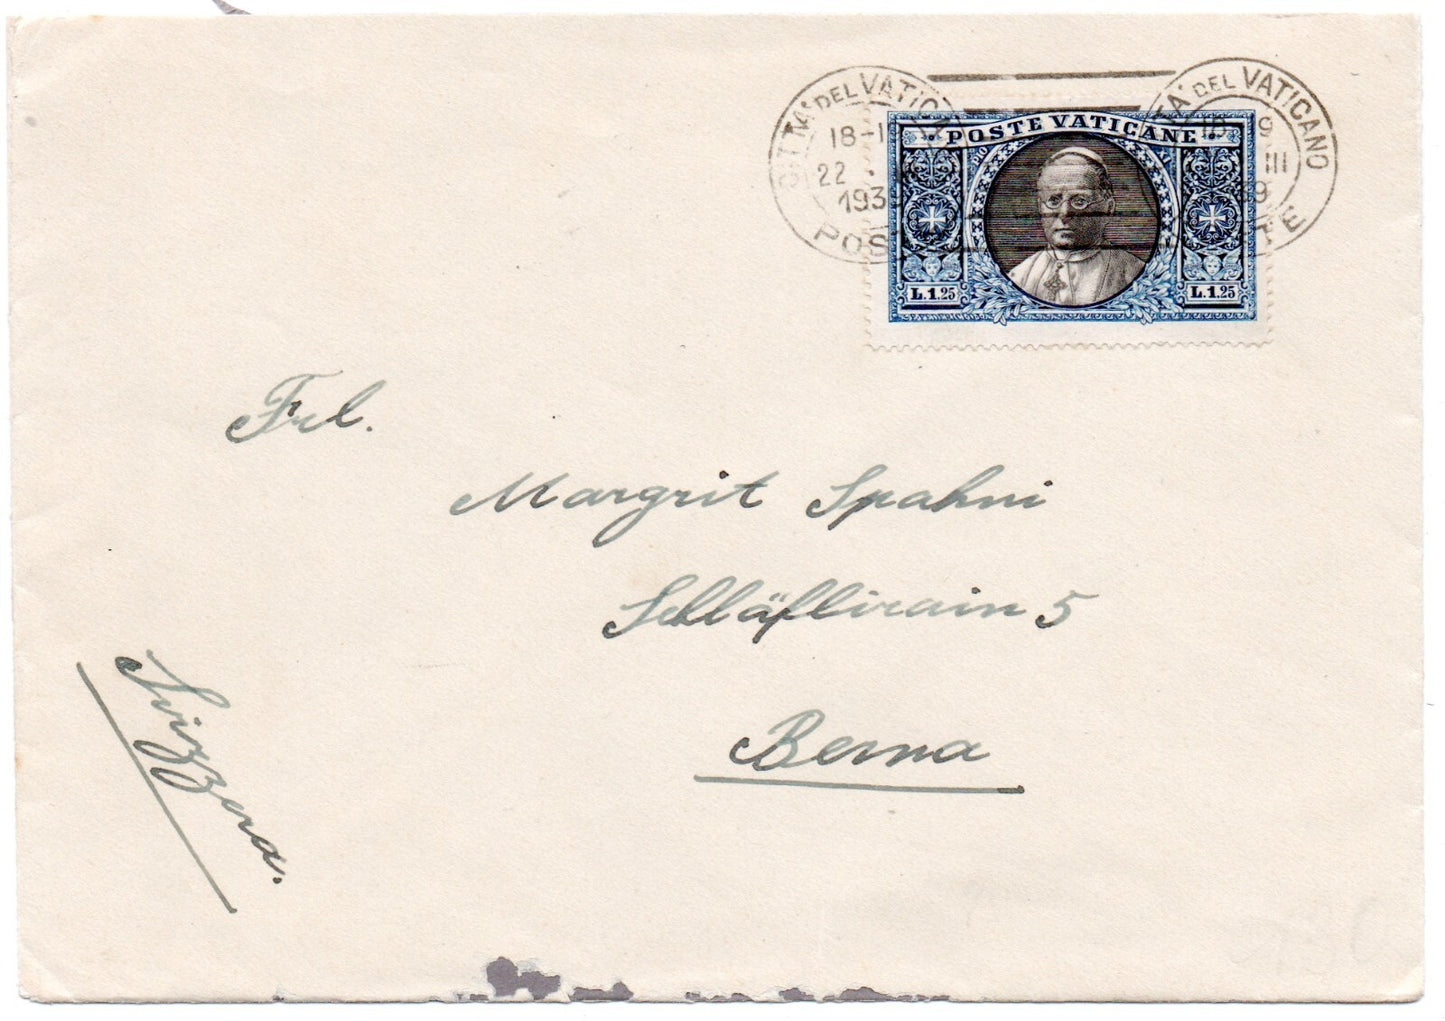 CITTA' DEL VATICANO
18-1
22 .
193
POS
TA' DEL VATICANO
18 9
III
9
TE
POSTE VATICANE
PIO XI
L.1.25 L.1.25
Frl.
Margrit Spahni
Schläflirain 5
Berna
Svizzera.